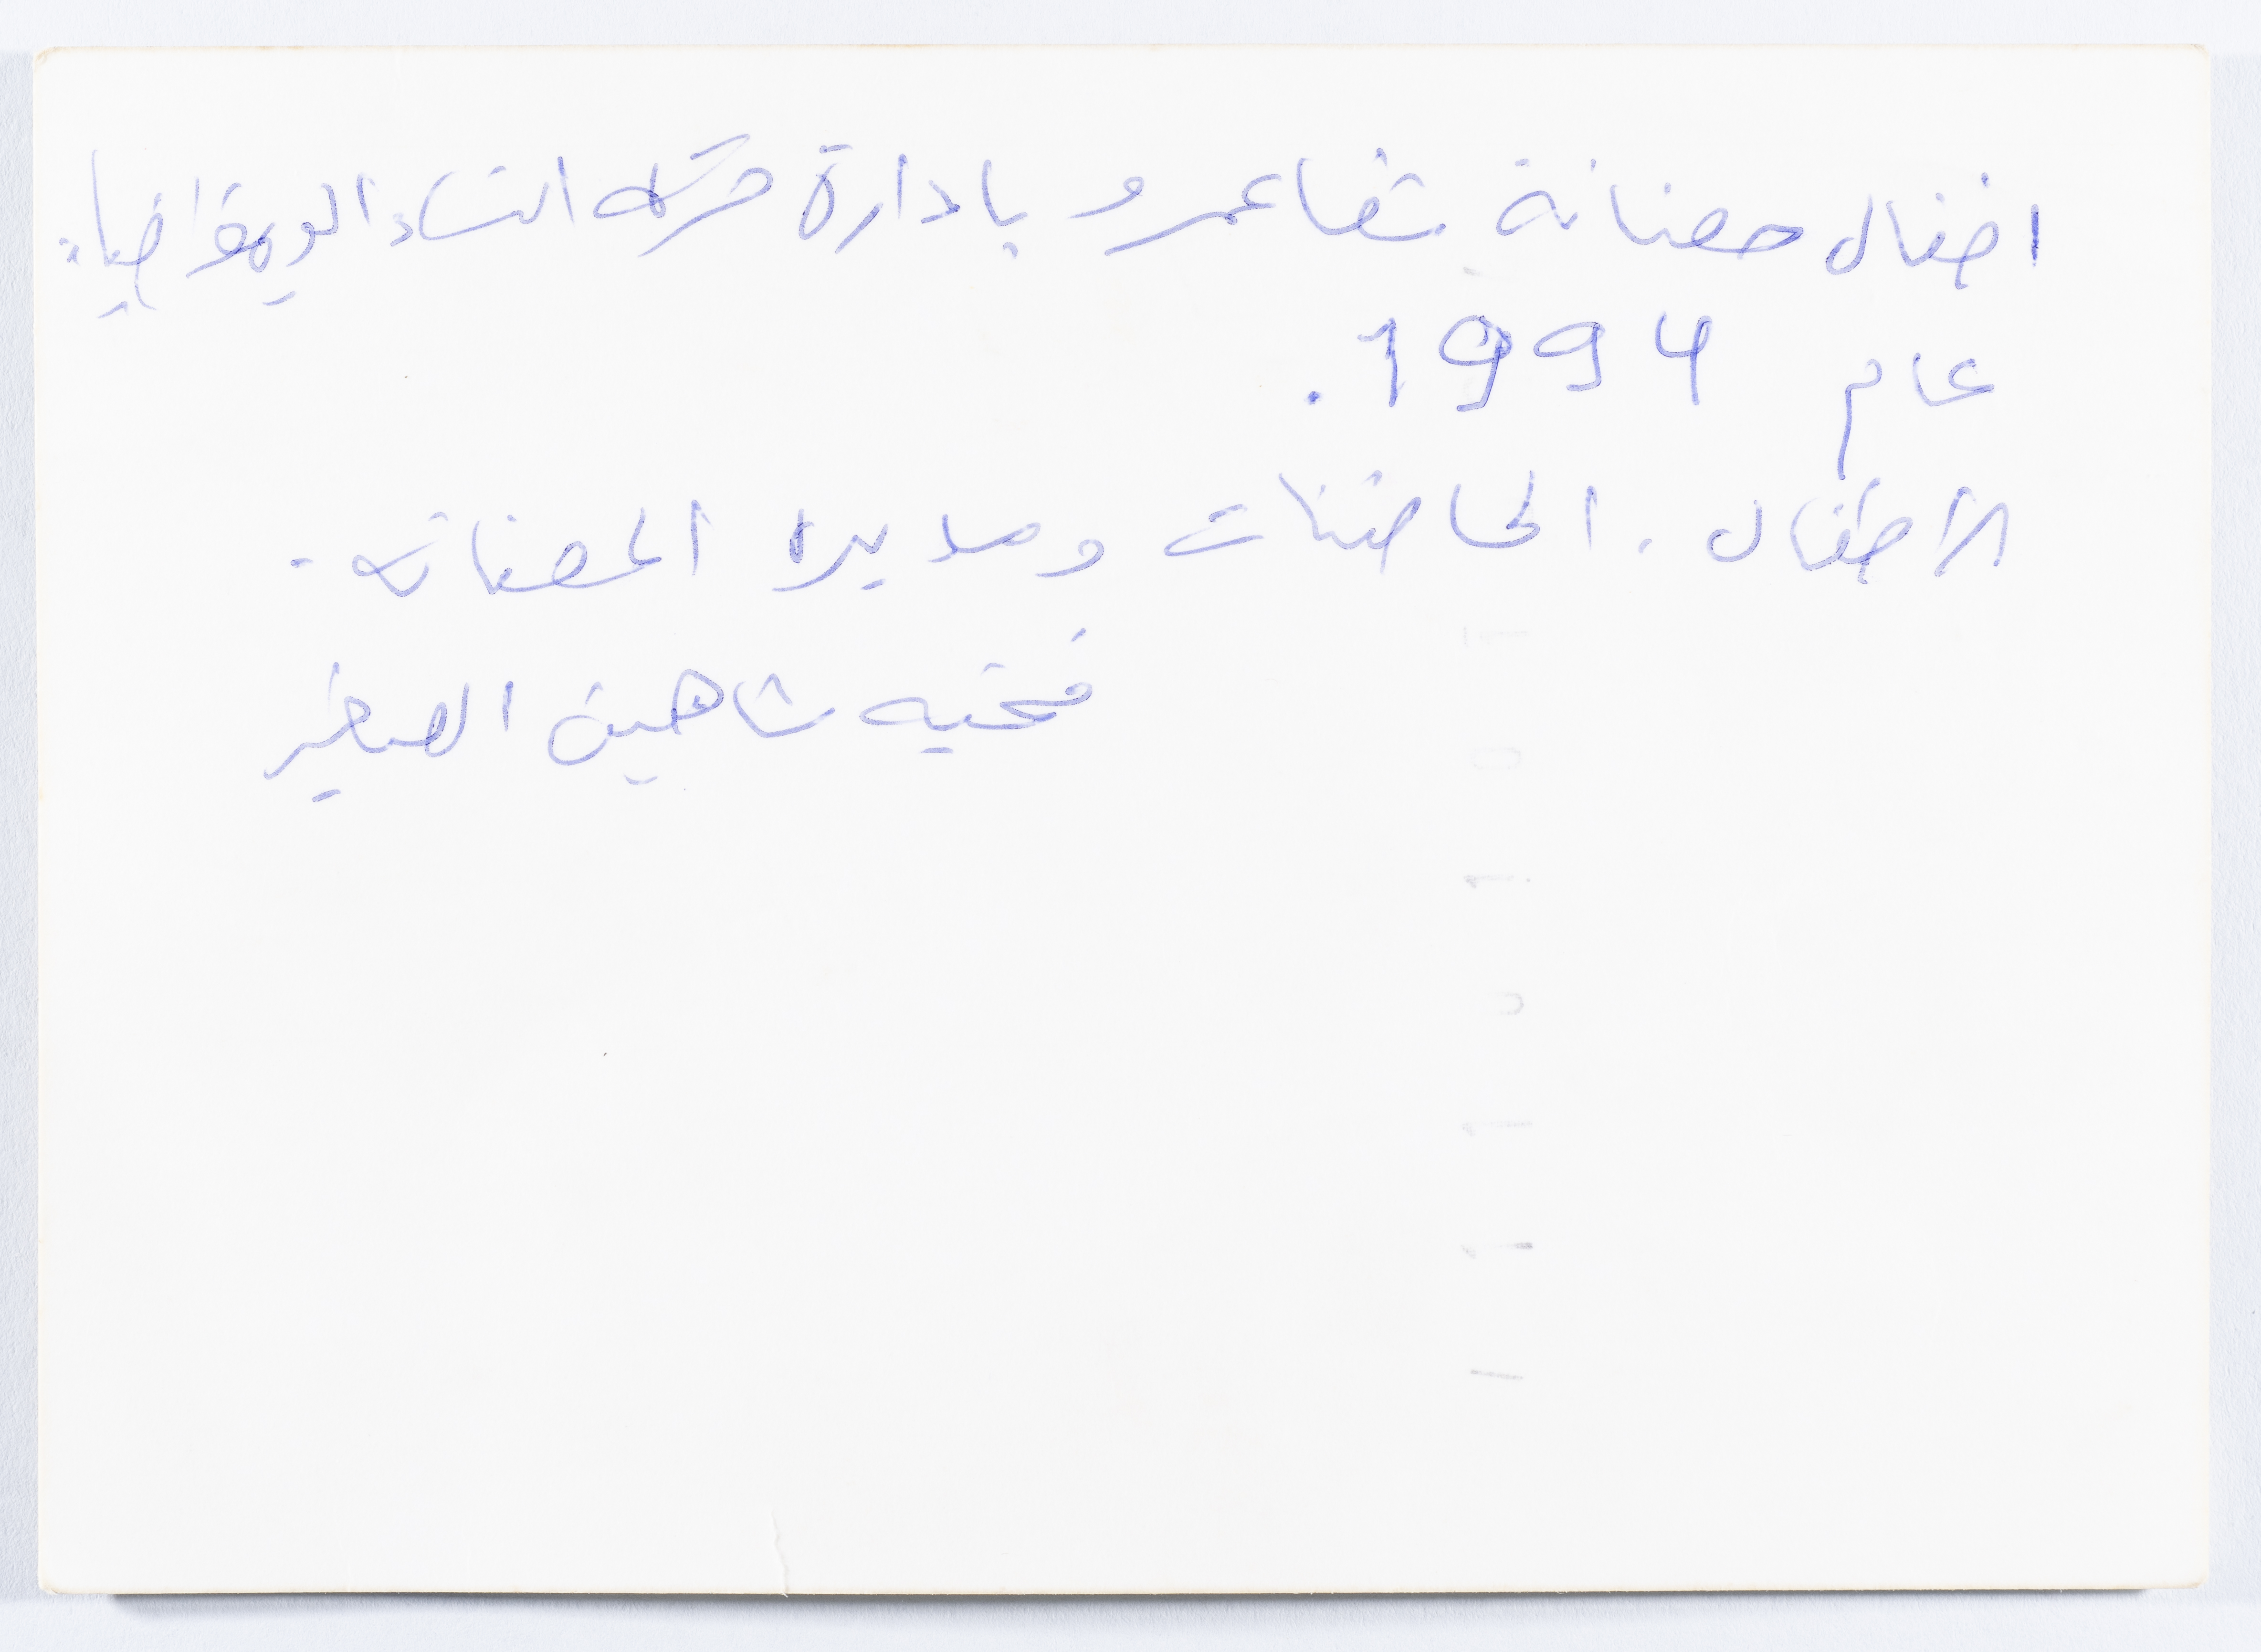 اطفال حضانة شفاعمرو بادارة حركة النساء الديمقراطيات
عام 1994.
الأطفال . الحاضنات ومديرة الحضانه .
فتحيه شاهين الصغير